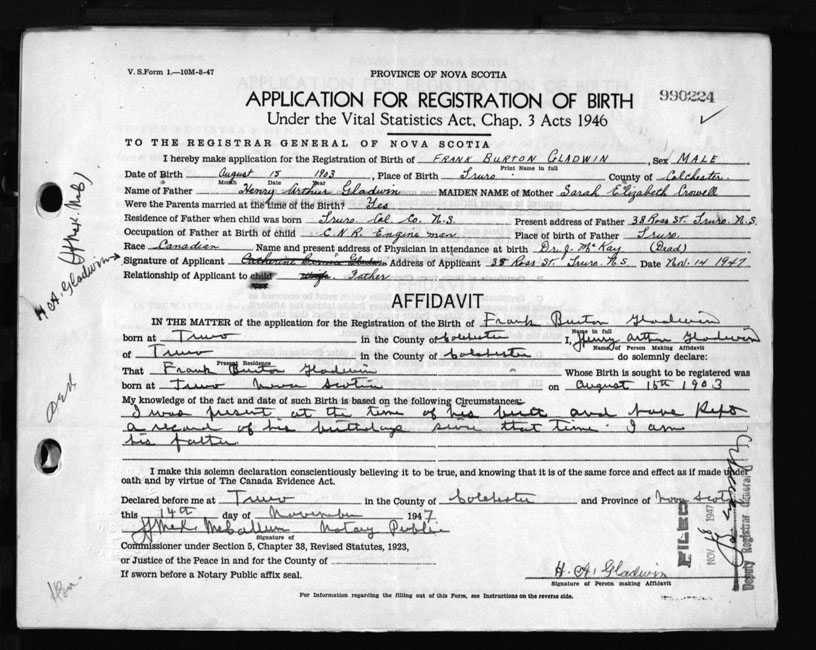 V. S. Form 1.—10M-8-47
PROVINCE OF NOVA SCOTIA
APPLICATION FOR REGISTRATION OF BIRTH
990224
Under the Vital Statistics Act, Chap. 3 Acts 1946
TO THE REGISTRAR GENERAL OF NOVA SCOTIA
I hereby make application for the Registration of Birth of FRANK BURTON GLADWIN, Sex MALE
Print Name in full
Date of Birth August 15 1903, Place of Birth Truro County of Colchester
Month Date Year
Name of Father Henry Arthur Gladwin MAIDEN NAME of Mother Sarah Elizabeth Crowell
Were the Parents married at the time of the Birth? Yes
Residence of Father when child was born Truro Col. Co. N.S. Present address of Father 38 Ross St. Truro. N.S.
Occupation of Father at Birth of child C N R. Engine man. Place of birth of Father Truro.
Race Canadian Name and present address of Physician in attendance at birth Dr. J. McKay (Dead)
Signature of Applicant Address of Applicant 38 Ross St. Truro. N.S. Date Nov. 14 1947
H. A. Gladwin
Relationship of Applicant to child wife Father
AFFIDAVIT
IN THE MATTER of the application for the Registration of the Birth of Frank Burton Gladwin
Name in full
born at Truro in the County of Colchester I, Henry Arthur Gladwin
Name of Person Making Affidavit
of Truro in the County of Colchester do solemnly declare:
Present Residence
That Frank Burton Gladwin Whose Birth is sought to be registered was
born at Truro Nova Scotia on August 15th 1903
My knowledge of the fact and date of such Birth is based on the following Circumstances:
I was present at the time of his birth and have kept
a record of his birthdays since that time. I am
his father
I make this solemn declaration conscientiously believing it to be true, and knowing that it is of the same force and effect as if made under
oath and by virtue of The Canada Evidence Act.
Declared before me at Truro in the County of Colchester and Province of Nova Scotia
this 14th day of November 1947
McCallum Notary Public
Signature of
Commissioner under Section 5, Chapter 38, Revised Statutes, 1923,
or Justice of the Peace in and for the County of
If sworn before a Notary Public affix seal.
H. A. Gladwin
Signature of Person making Affidavit
FILED
NOV 1947
Deputy Registrar General
For Information regarding the filling out of this Form, see Instructions on the reverse side.